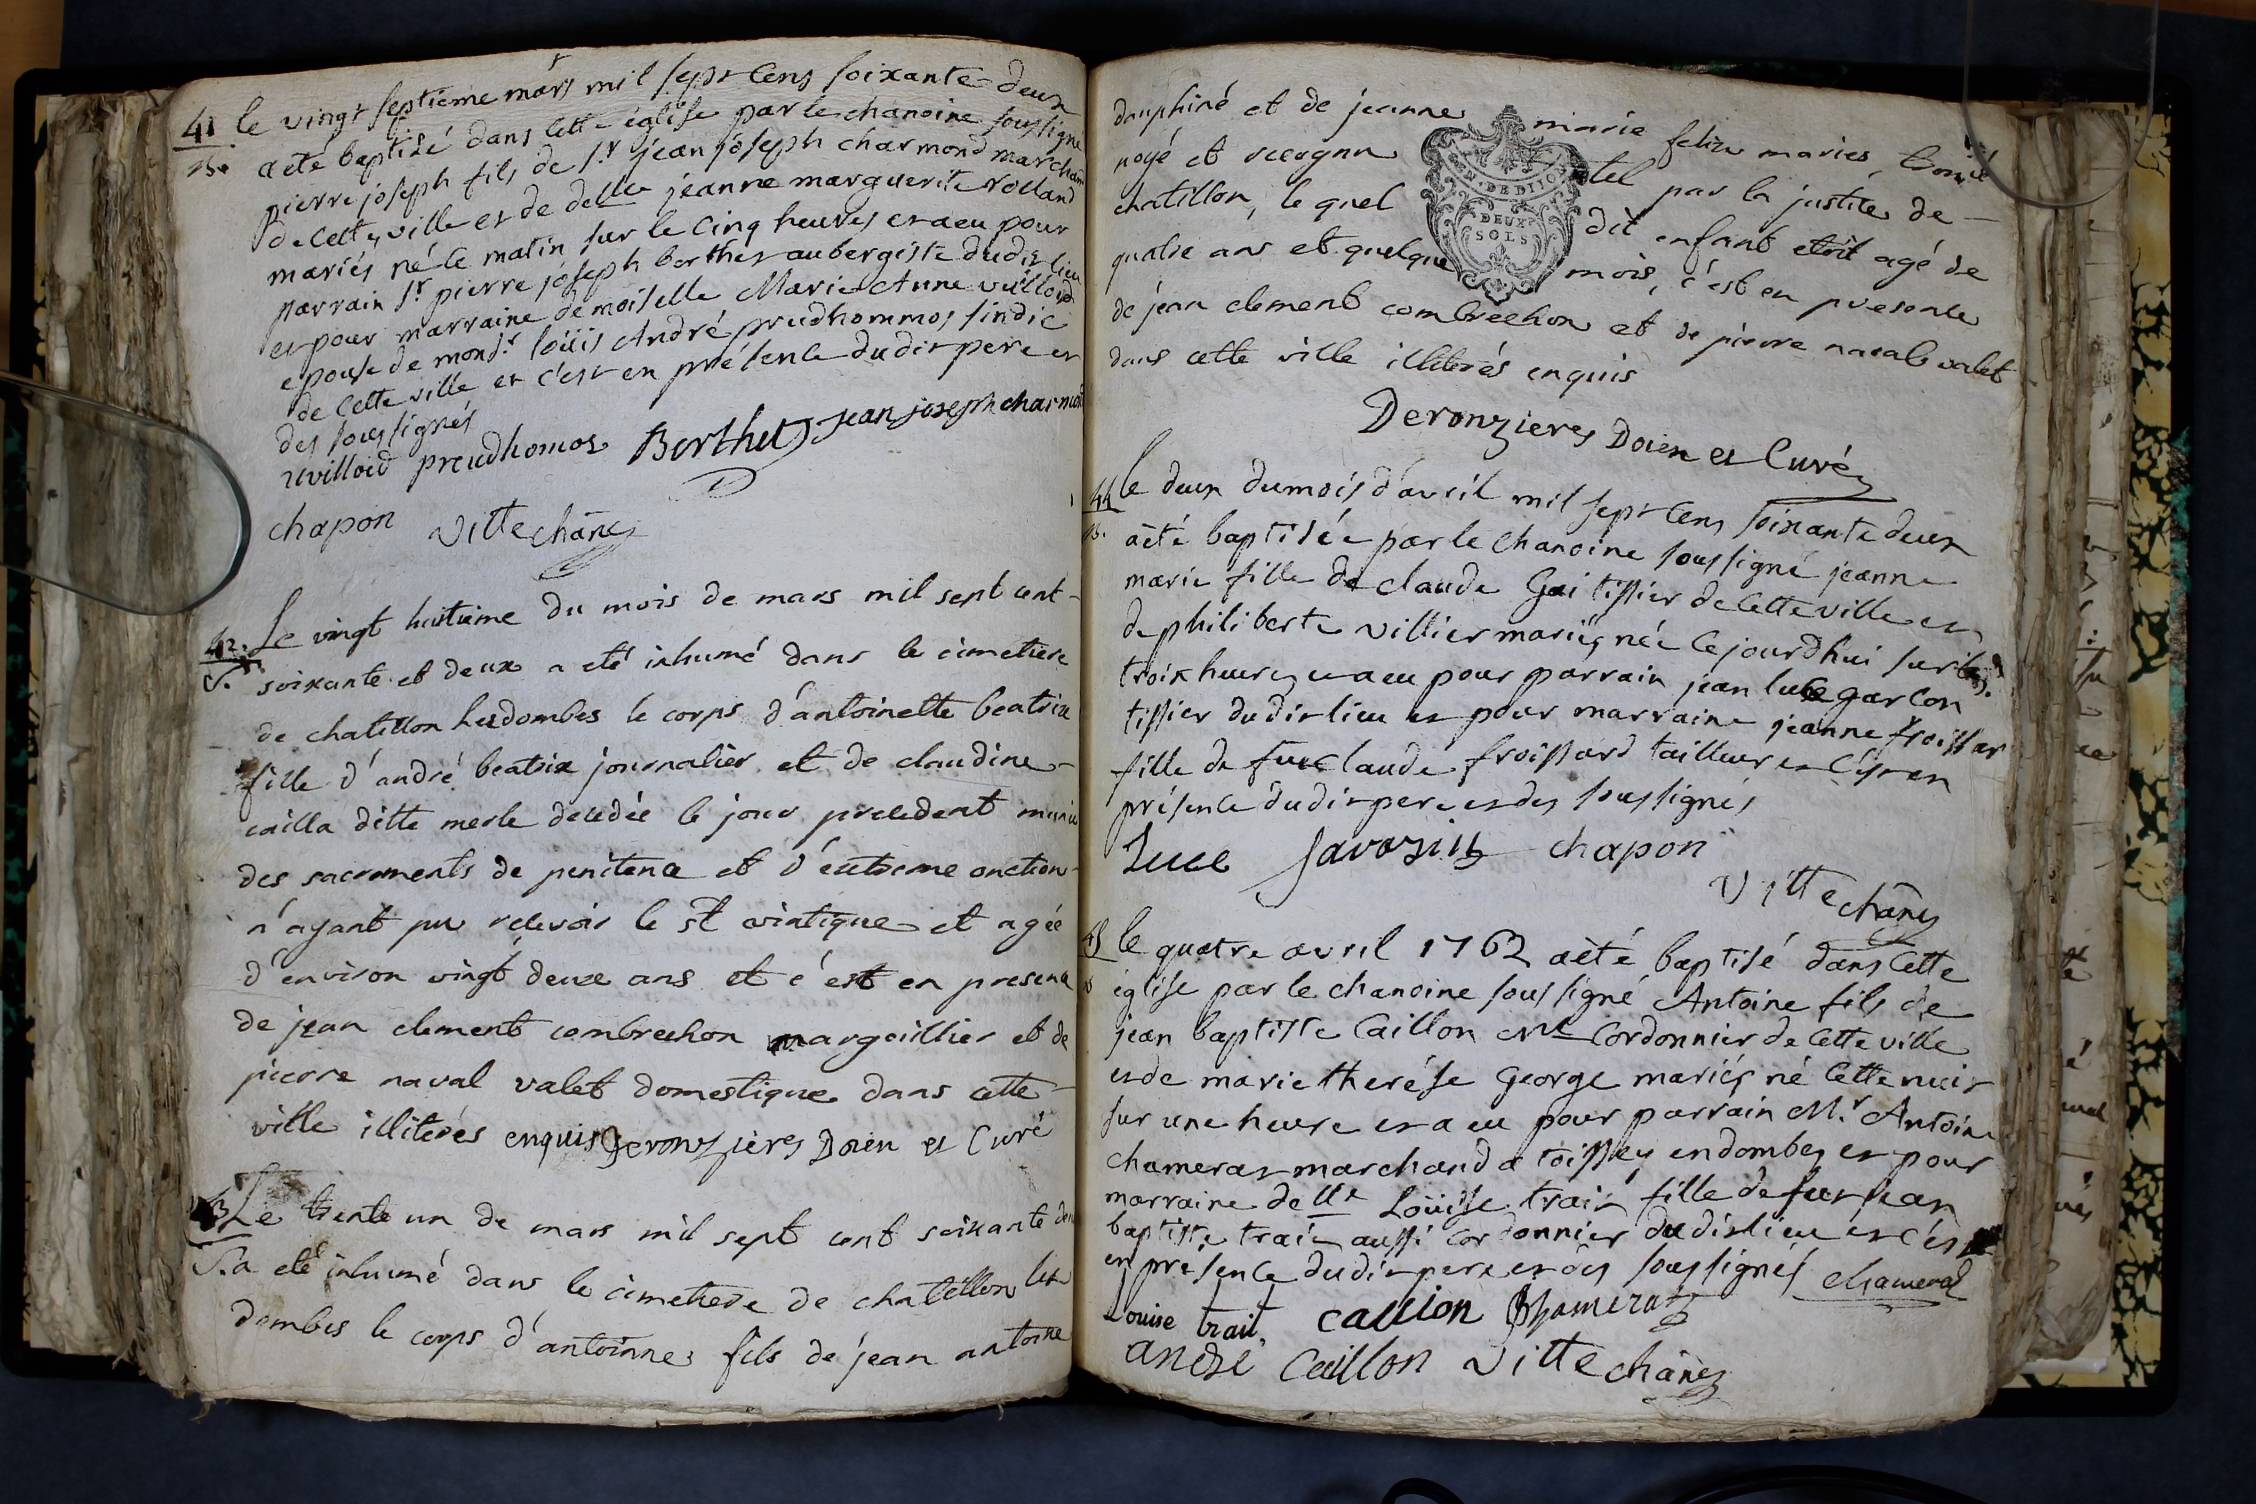 41 le vingt septieme mars mil sept cens soixante deux
B. a eté baptisé dans cette église par le chanoine soussigné
pierre joseph fils de Sr jean joseph charmond marchand
de cette ville et de delle jeanne marguerite rolland
mariés né le matin sur le cinq heures et a eu pour
parrain Sr pierre joseph berthet aubergiste dudit lieu
et pour marraine demoiselle Marie Anne vuilloid
epouse de monsr. loüis André prudhommos sindic
de cette ville et c'est en présence dudit pere et
des soussignés
vuilloid preudhomos Berthet jean joseph charmond
chapon Vitte chane
42. Le vingt huitieme du mois de mars mil sept cent
S. soixante et deux a eté inhumé dans le cimetiere
de chatillon lesdombes le corps d'antoinette beatrix
fille d'andré beatrix journalier et de claudine
cailla ditte merle decedée le jour precedent munie
des sacrements de penitence et d'extreme onction
n'ayant pu recevoir le st viatique et agée
d'environ vingt deux ans et c'est en presence
de jean clement combrechon margaillier et de
pierre naval valet domestique dans cette
ville illiterés enquis Deronzieres Doien et Curé
43 Le trente un de mars mil sept cent soixante deux
S. a eté inhumé dans le cimetiere de chatillon les
dombes le corps d'antoinne fils de jean antoine
dauphiné et de jeanne marie felix mariés,
noyé et reconnu tel par la justice de
chatillon, le quel dit enfant etoit agé de
quatre ans et quelque mois, c'est en presence
de jean clement combrechon et de pierre naval valet
dans cette ville illiterés enquis
GEN. DE DIJON
DEUX
SOLS
Deronzieres Doien et Curé
44 le deux du mois d'avril mil sept cens soixante deux
B. a eté baptisée par le chanoine soussigné jeanne
marie fille de claude Gai tissier de cette ville et
de philiberte villier mariés née ce jourdhui sur les
trois heures et a eu pour parrain jean luce garcon
tissier dudit lieu et pour marraine jeanne froissar
fille de feu claude froissard tailleur et c'est en
présence dudit pere et des soussignés
Luce Savarin chapon
Vitte chane
45 le quatre avril 1762 a eté baptisé dans cette
B église par le chanoine soussigné Antoine fils de
jean baptiste Caillon Me Cordonnier de cette ville
et de marie therése George mariés né cette nuit
sur une heure et a eu pour parrain Mr. Antoine
chamerat marchand a toissey en dombes et pour
marraine delle Loüise trait fille de feu jean
baptiste trait aussi cordonnier dudit lieu et c'est
en présence dudit pere et des soussignés chamerat
Louise trait, caillon Chamerat
andré Caillon Vitte chane